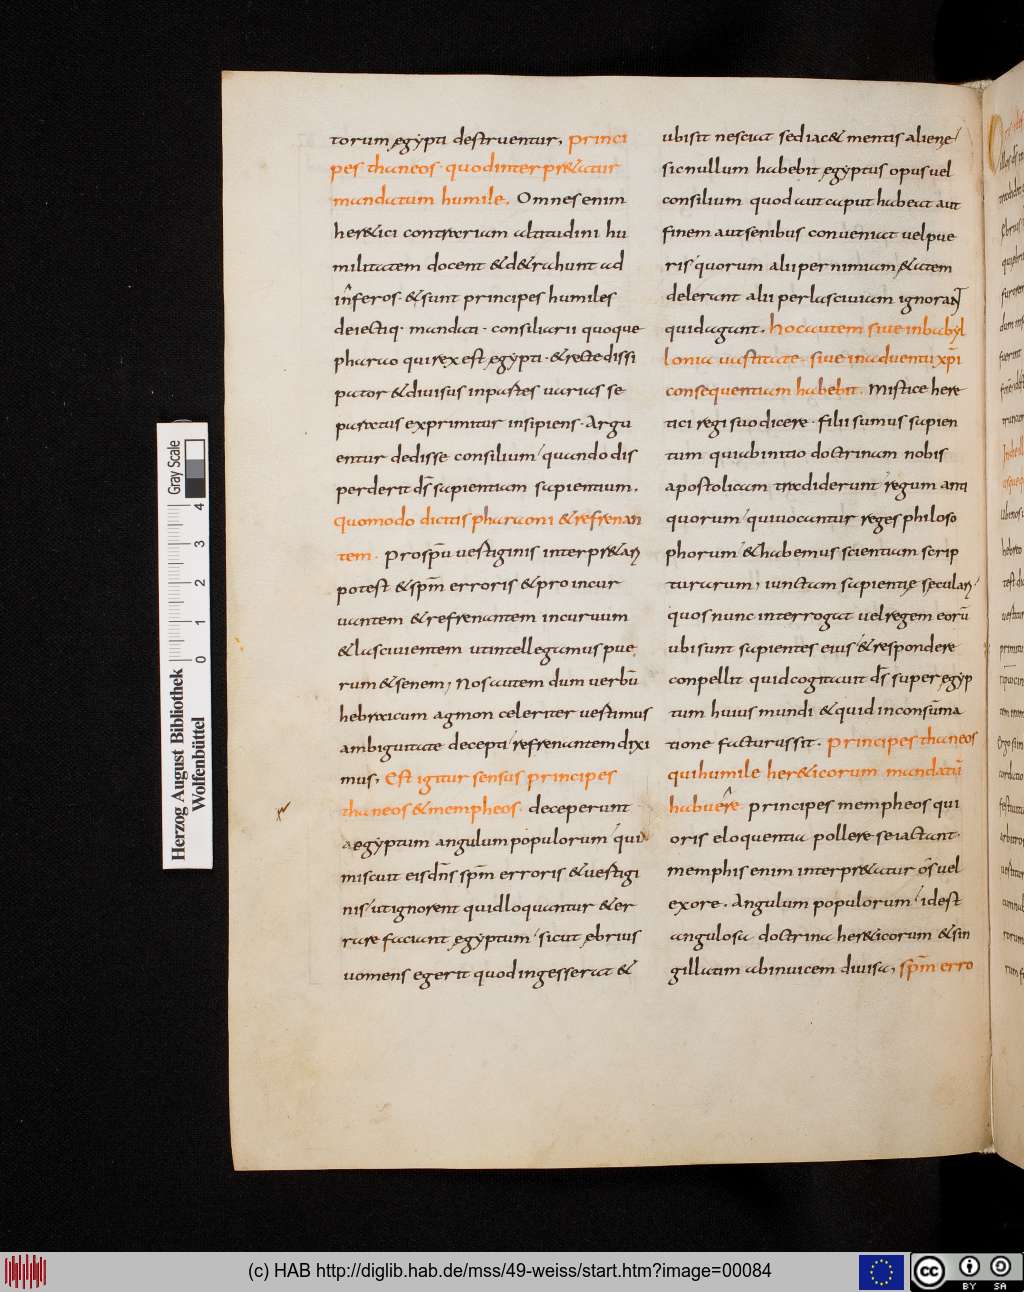 torum ęgypti destruentur, princi
pes thaneos · quod interpr&atur
mandatum humile. Omnes enim
her&ici contrarium altitudini hu
militatem docent & d&rahunt ad
inferos · & sunt principes humiles
deiectiq· mandati · consiliarii quoque
pharao qui rex est ęgypti · & recte dissi
pator & diuisus in partes uarias se
paratus exprimitur insipiens · Argu
entur dedisse consilium quando dis
perderit ds̄ sapientiam sapientium.
quomodo dicitis pharaoni & refrenan
tem · prosp̄u uestiginis interpr&ari
potest & sp̄m erroris & pro incur
uantem & refrenantem incuruum
& lasciuientem ut intellegamus pue
rum & senem, Nos autem dum uerbū
hebraicum agmon celeriter uestimus
ambiguitate decepti refrenantem dixi
mus, Est igitur sensus principes
thaneos & mempheos · deceperunt
aegyptum angulum populorum qui
miscuit eis dn̄s sp̄m erroris & uestigi
nis ut ignorent quid loquantur & er
rare faciant ęgyptum sicut ębrius
uomens egerit quod ingesserat &
ubi sit nesciat sed iac& mentis alienę
sic nullum habebit ęgyptus opus uel
consilium quod aut caput habeat aut
finem aut senibus conueniat uel pue
ris quorum alii per nimiam ętatem
delerant alii per lasciuiam ignorant
quid agant. hoc autem siue in babyl
lonia uastitate · siue in aduentu xp̄i
consequentiam habebit. Mistice here
tici regi suo dicere · filii sumus sapien
tum qui ab initio doctrinam nobis
apostolicam tradiderunt regum anti
quorum qui uocantur reges philoso
phorum & habemus scientiam scrip
turarum, iunctam sapientię seculari
quos nunc interrogat uel regem eorū
ubi sunt sapientes eius & respondere
conpellit quid cogitauit ds̄ super ęgyp
tum huius mundi & quid in consūma
tione facturus sit. principes thaneos
qui humile her&icorum mandatū
habuere principes mempheos qui
oris eloquentia pollere se iactant ·
memphis enim interpr&atur ós uel
ex ore. Angulum populorum idest
angulosa doctrina her&icorum & sin
gillatim ab inuicem diuisa, sp̄m erro
Gray Scale
4 3 2 1 0
Herzog August Bibliothek
Wolfenbüttel
(c) HAB http://diglib.hab.de/mss/49-weiss/start.htm?image=00084
cc BY SA